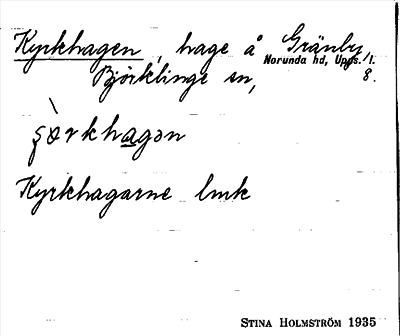 Kyrkhagen, hage å Gränby
Björklinge sn, Norunda hd, Upps. l.
8.
Kyrkhagarne lmk
STINA HOLMSTRÖM 1935